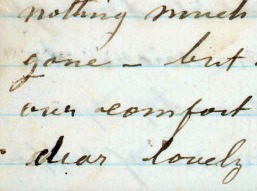 nothing much
gone – but
our comfort
dear lovely